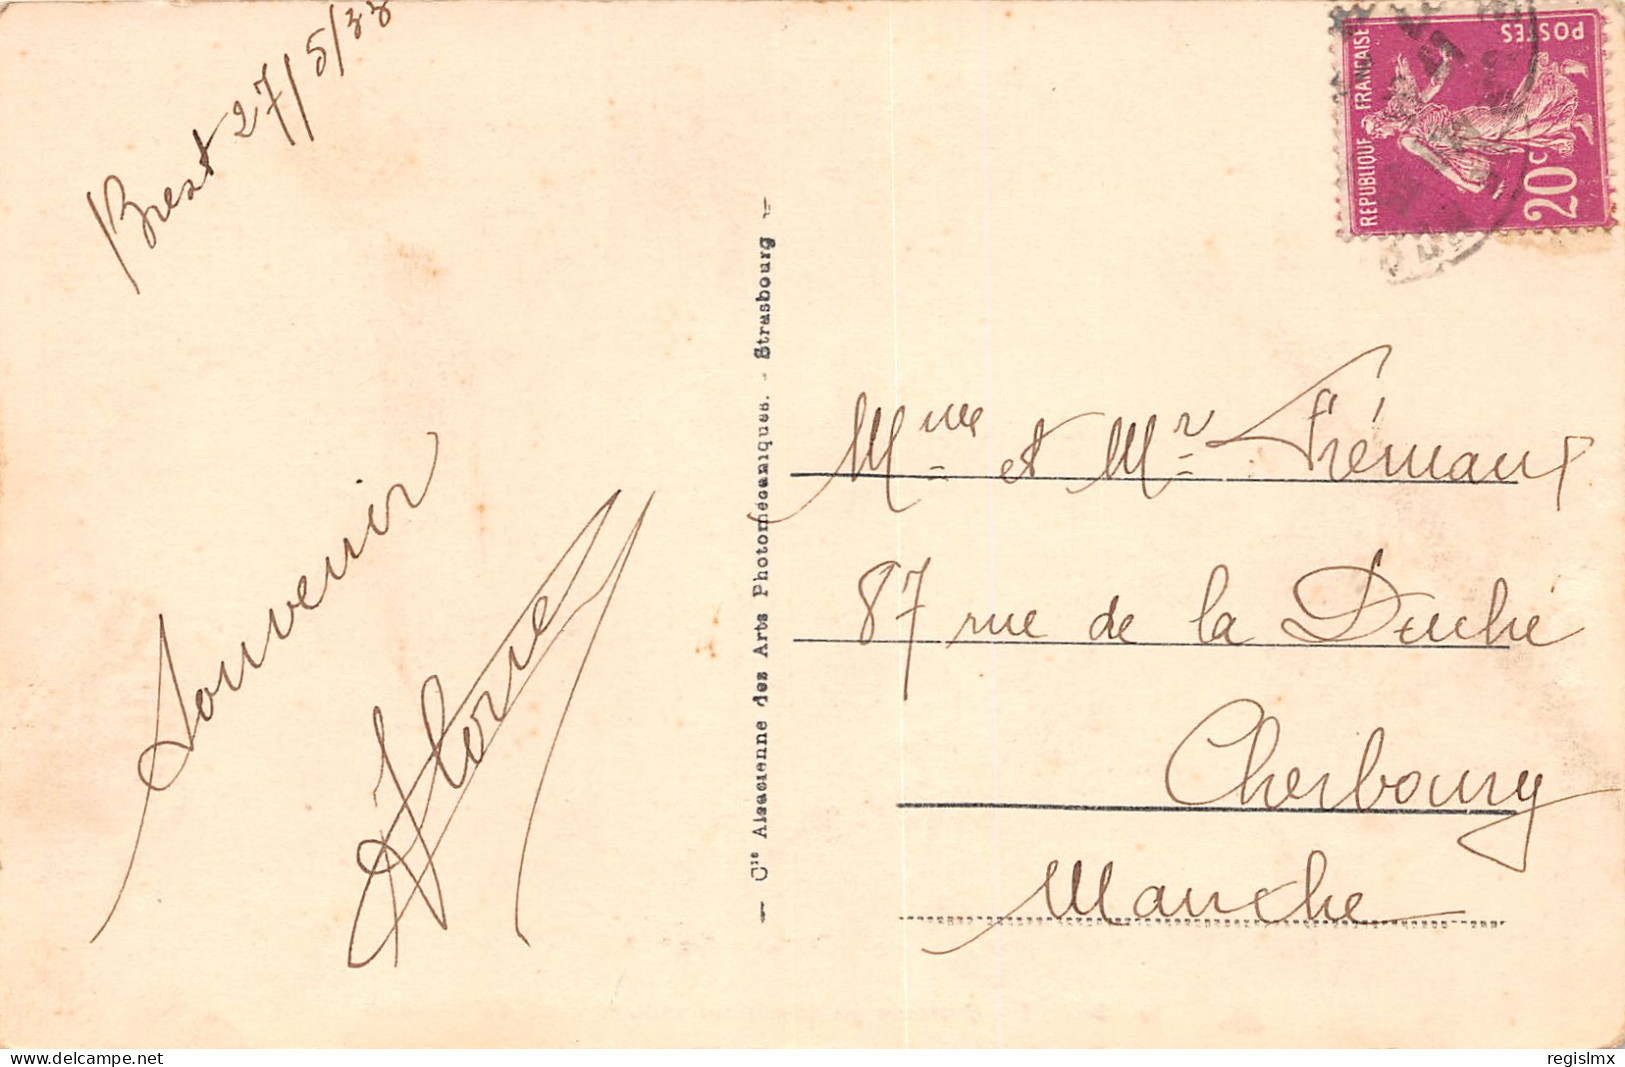 Brest 27/5/33
Souvenir
— Cie Alsacienne des Arts Photomécaniques. - Strasbourg —
REPUBLIQUE FRANÇAISE
POSTES
20c
Mme et Mr Frémaux
87 rue de la Duché
Cherbourg
Manche
delcampe.net
regislmx